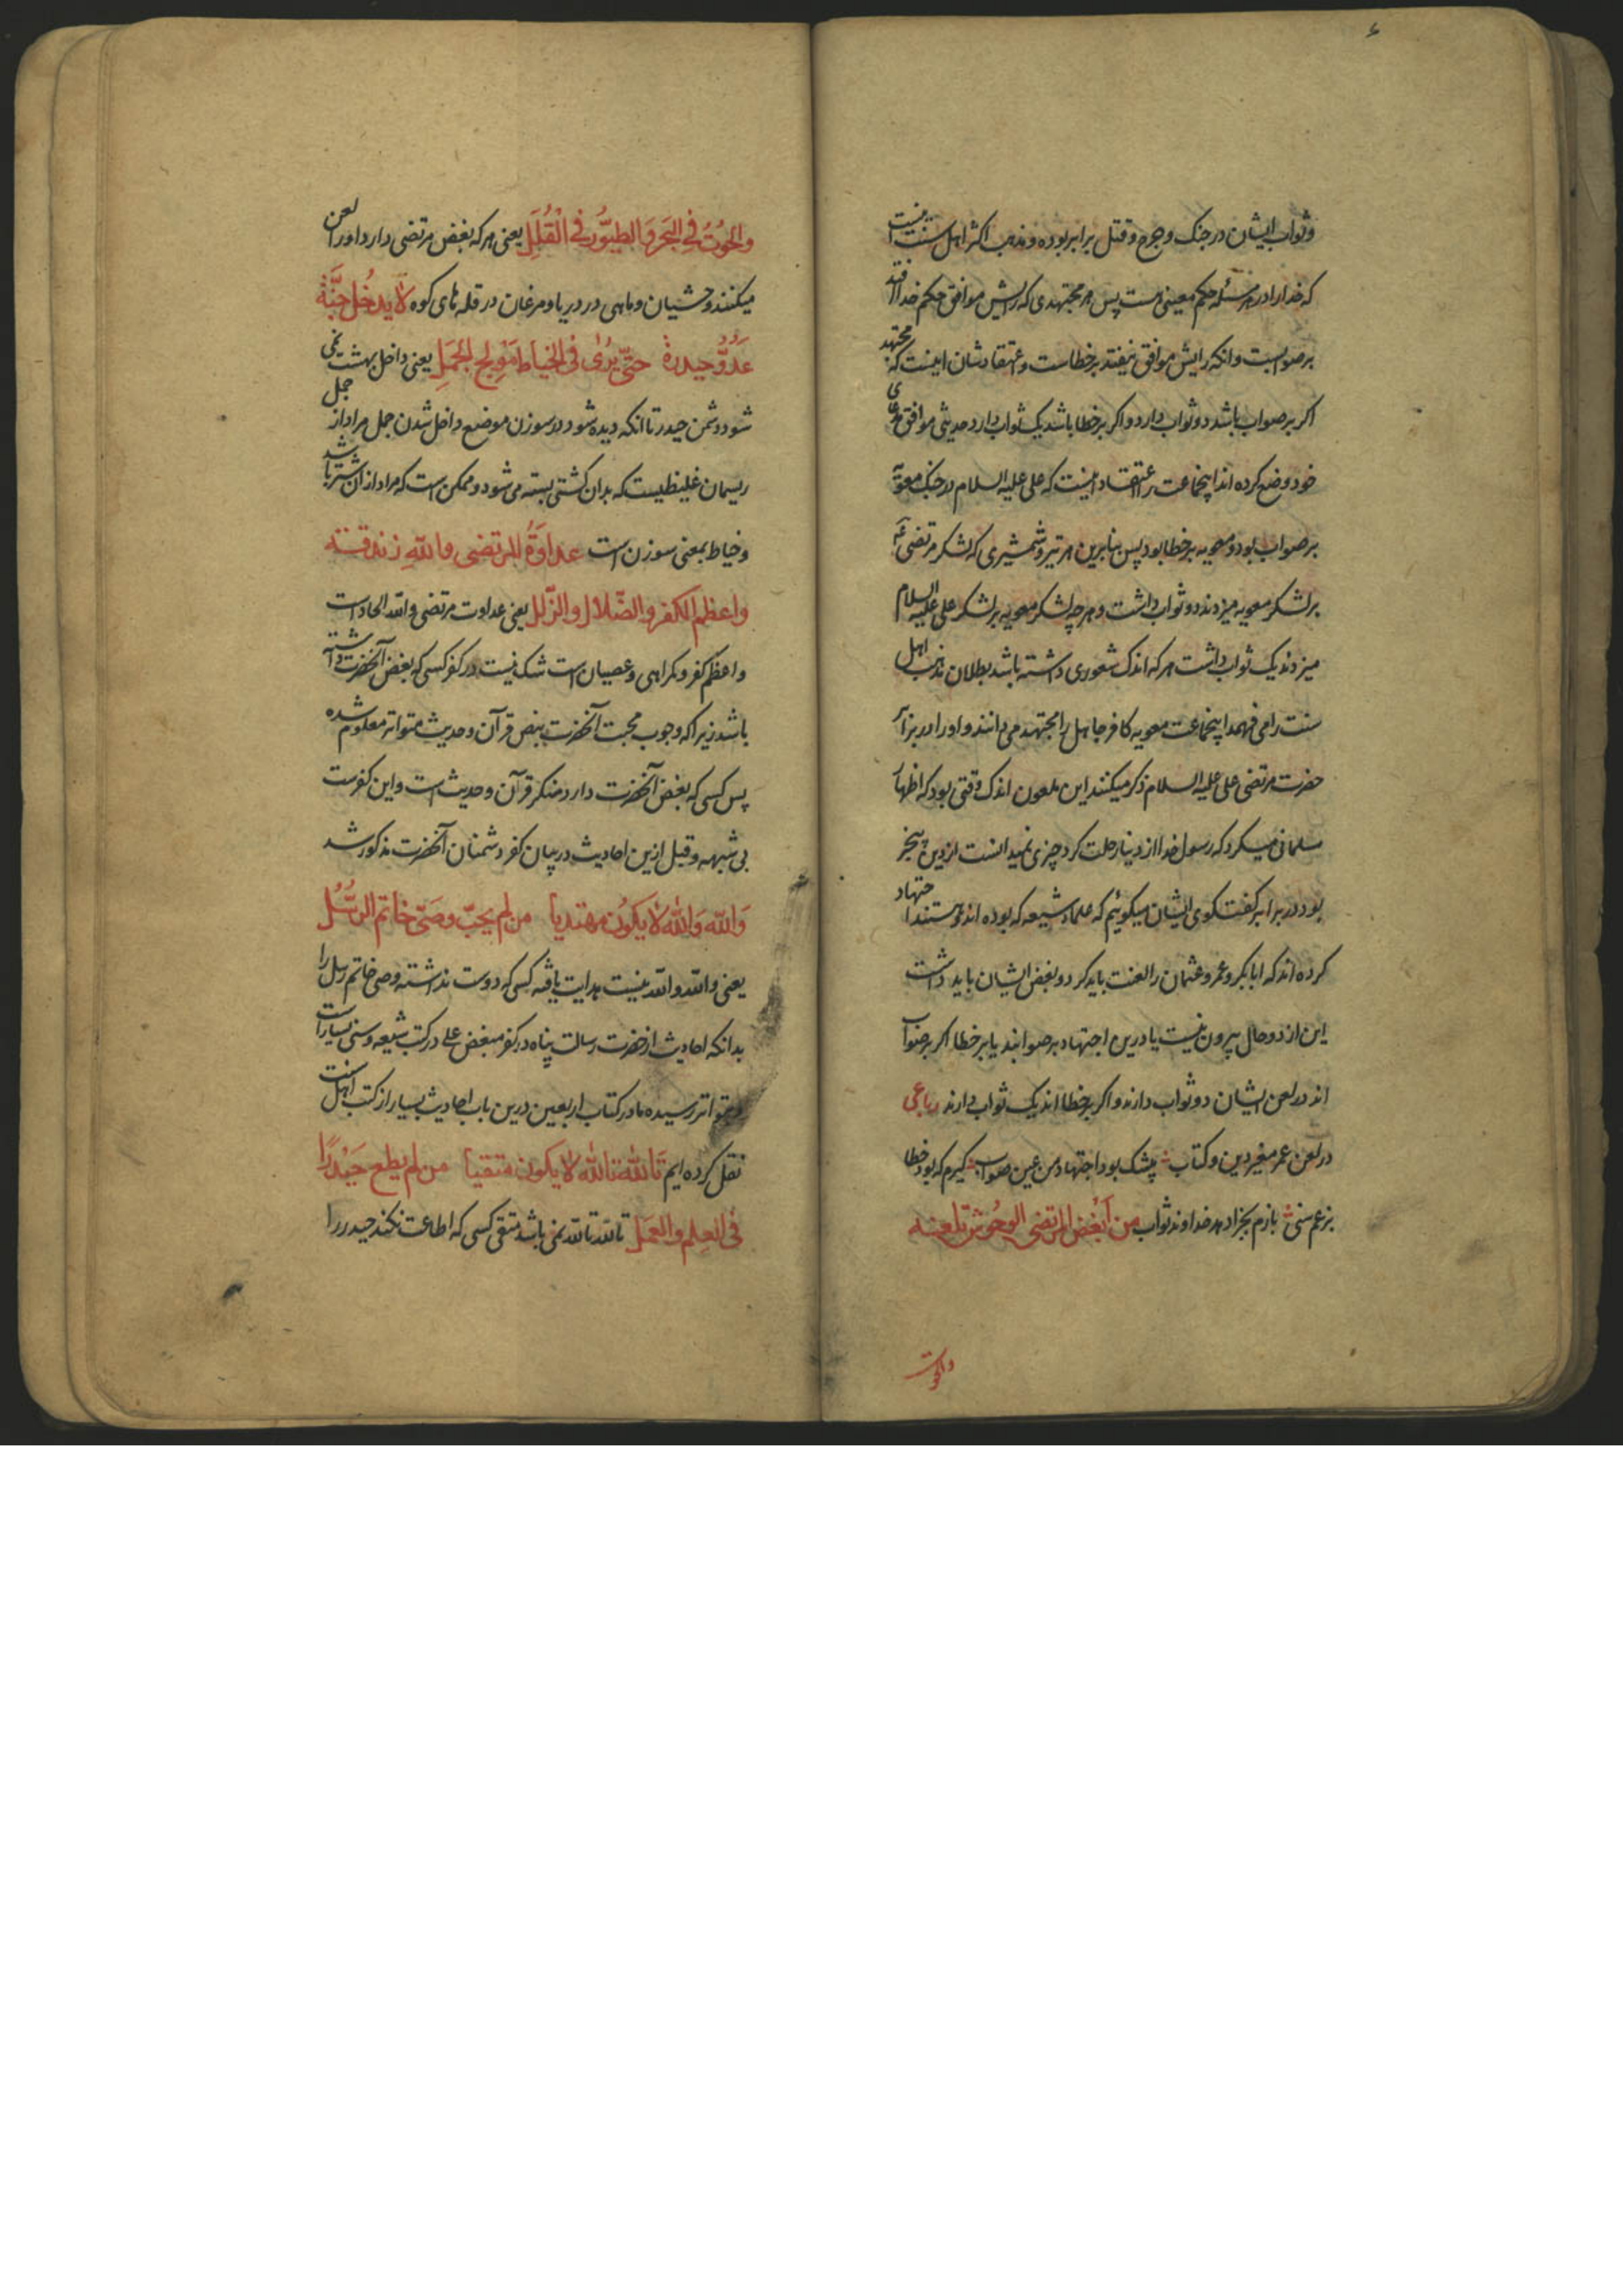 وثواب ایشان در جنک و جرح و قتل برابر بوده و مذهب اکثر اهل سنت اینست
که خدا را در هر مسئله حکم معینی هست پس هر مجتهدی که رایش موافق حکم خدا افتد
بر صوابست و انکه رایش موافق نیفتد بر خطاست و اعتقادشان اینست که مجتهد
اکر بر صواب باشد دو ثواب دارد و اکر بر خطا باشد یک ثواب دارد و حدیثی موافق مدعای
خود وضع کرده اند اینجماعت را اعتقاد اینست که علی علیه السلام در جنک معویه
بر صواب بود و معویه بر خطا بود پس بنابرین هر تیر و شمشیری که لشکر مرتضی
بر لشکر معویه میزدند دو ثواب داشت و هر چه لشکر معویه بر لشکر علی علیه السلام
میزدند یک ثواب داشت هر که اندک شعوری داشته باشد بطلان مذهب اهل
سنت را می فهمد اینجماعت معویه کافر جاهل را مجتهد می دانند و او را در برابر
حضرت مرتضی علی علیه السلام ذکر میکنند این ملعون اندک وقتی بود که اظهار
مسلمانی میکرد که رسول خدا از دنیا رحلت کرد چیزی نمیدانست از دین بیخبر
بود در برابر کفتکوی ایشان میکوئیم که علماء شیعه که بوده اند و هستند اجتهاد
کرده اند که ابابکر و عمر و عثمان را لعنت باید کرد و بغض ایشان باید داشت
این از دو حال بیرون نیست یا درین اجتهاد بر صوابند یا بر خطا اکر بر صواب
اند در لعن ایشان دو ثواب دارند و اکر بر خطا اند یک ثواب دارند رباعی
در لعن عمر مغیر دین و کتاب بیشک بود اجتهاد من عین صواب کیرم که بود خطا
بزعم سنی بازم بجزا دهد خداوند ثواب من ابغض المرتضی الوحوش تلعنه
والحوت
والحُوتُ فِی البَحرِ وَالطیُّور فی القُلَلِ یعنی هر که بغض مرتضی دارد او را لعن
میکنند وحشیان و ماهی در دریا و مرغان در قله های کوه لا یدخُل جنَّة
عَدُوُّ حیدرة حتّی یُرٰی فی الخیاط مَولِج الجَمَلِ یعنی داخل بهشت نمی
شود دشمن حیدر تا انکه دیده شود در سوزن موضع داخل شدن جمل مراد از جمل
ریسمان غلیظیست که بدان کشتی بسته می شود و ممکن است که مراد از ان شتر باشد
و خیاط بمعنی سوزن است عداوةُ المرتضی والله زندقة
واعظم الکفر والضّلال والزّلل یعنی عداوت مرتضی والله الحاد است
و اعظم کفر و کمراهی و عصیان است شک نیست در کفر کسی که بغض آنحضرت داشته
باشد زیرا که وجوب محبت آنحضرت بنص قرآن و حدیث متواتر معلوم شده
پس کسی که بغض آنحضرت دارد منکر قرآن و حدیث است و این کفرست
بی شبهه و قبل ازین احادیث در بیان کفر دشمنان آنحضرت مذکور شد
وَاللّه وَاللّه لا یکون مهتدیا من لم یحبّ وصَیّ خاتم الرسُل
یعنی والله والله نیست هدایت یافته کسی که دوست نداشته وصی خاتم رسل را
بدانکه احادیث از حضرت رسالت پناه در کفر مبغض علی در کتب شیعه و سنی بسیار است
و بتواتر رسیده ما در کتاب اربعین درین باب احادیث بسیار از کتب اهل سنت
نقل کرده ایم تالله تالله لا یکون متقیا من لم یطع حَیدرًا
فی العلم والعمل تالله تالله نمی باشد متقی کسی که اطاعت نکند حیدر را